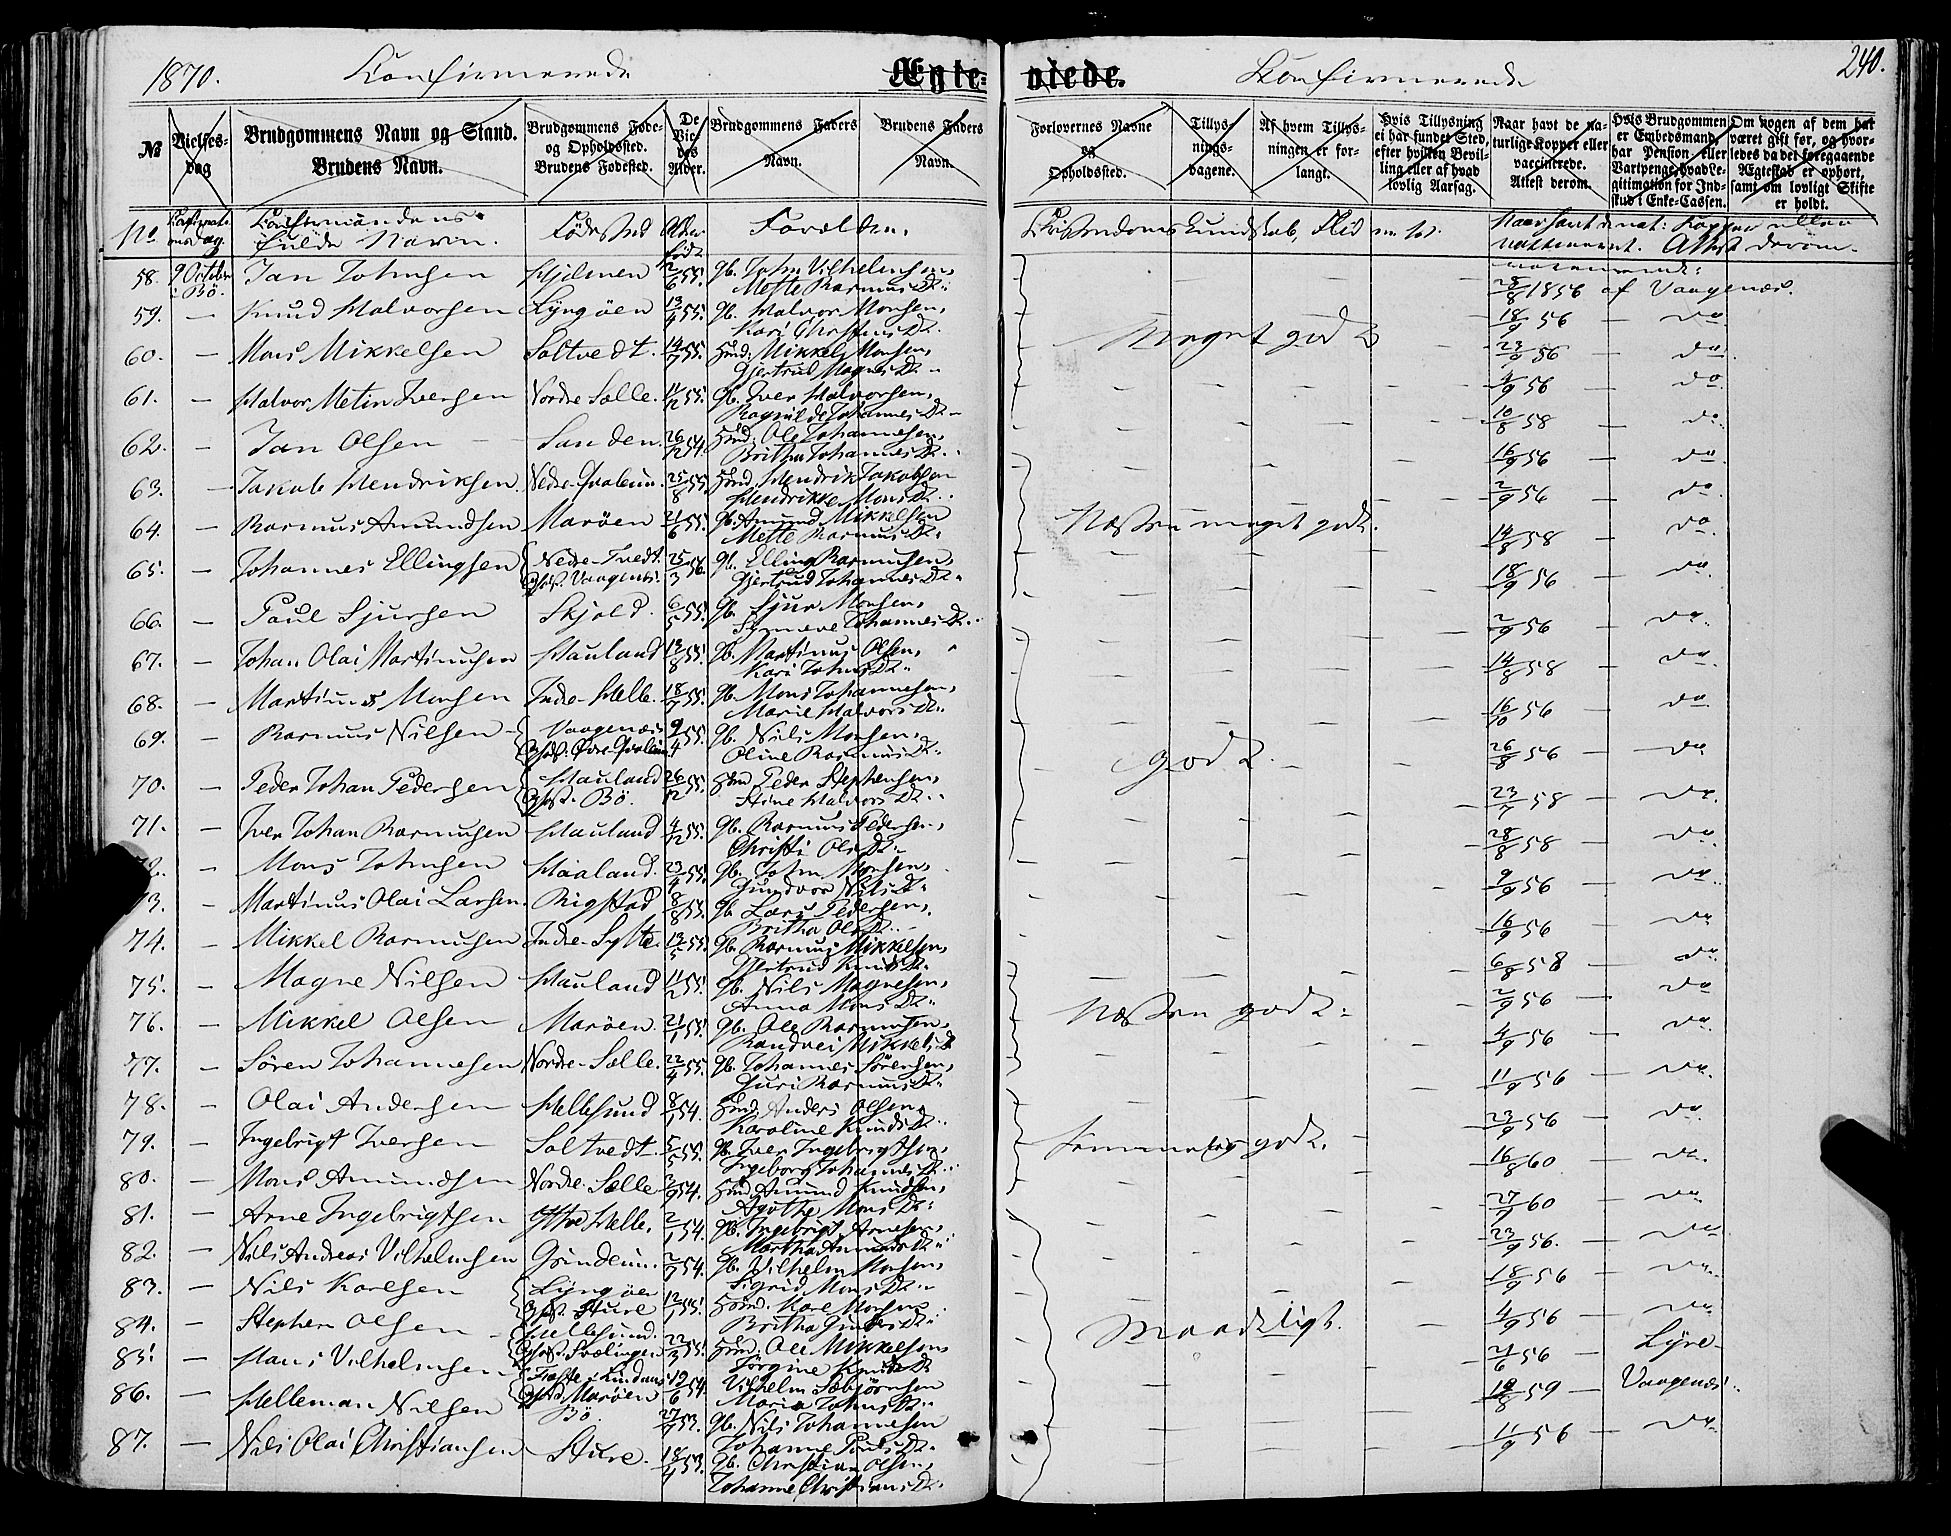 1870. Konfirmerede Ægte-
viede. Konfirmerede 240.
№
Vielses-
dag
Brudgommens Navn og Stand.
Brudens Navn.
Brudgommens Føde-
og Opholdssted.
Brudens Fødested.
De
Vie-
des
Alder.
Brudgommens Faders
Navn.
Brudens Faders
Navn.
Forlovernes Navne
og
Opholdssted.
Tillys-
nings-
dagene.
Af hvem Tillys-
ningen er for-
langt.
Hvis Tillysning
ei har fundet Sted,
efter hvilken Bevil-
ling eller af hvad
lovlig Aarsag.
Naar havt de na-
turlige Kopper eller
vaccinerede.
Attest derom.
Hvis Brudgommen
er Embedsmand,
har Pension eller
Vartpenge, hvad Le-
gitimation for Ind-
skud i Enke-Cassen.
Om nogen af dem har
været gift før, og hvor-
ledes da det foregaaende
Ægteskab er ophørt,
samt om lovligt Skifte
er holdt.
No Konfirmations dag. Konfirmandens fulde Navn. Fødested Alder født Forældre. Kristendoms Kundskab, Flid
58. 9 October i Bö. Jan Johnsen Hjelmen 2/6 55. Gb. John Vilhelmsen, Mette Rasmusdr. 28/8 1856 af Vaagenæs.
59. — Knud Halvorsen Lyngöen 13/4 55. Gb. Halvor Monsen, Kari Christensdr. 18/9 56 — do
60. — Mons Mikkelsen Soltvedt. 14/7 55. Huusmd. Mikkel Monsen, Gjertrud Magnedr. Meget godt 23/9 56 — do
61. — Halvor Metin Iversen Nordre Sælle. 11/12 55. Gb. Iver Halvorsen, Ragnilde Johannesdr. 4/9 56 — do
62. — Jan Olsen Sanden. 26/12 54. Huusmd. Ole Johannesen, Britha Johannesdr. 10/8 58 — do
63. — Jakob Hendriksen 25/8 55 Huusmd. Hendrik Jakobsen Hendrikke Monsdr. 16/9 56 — do
64. — Rasmus Amundsen Maröen 21/6 55. Gb. Amund Mikkelsen Mette Rasmusdr. Næsten meget godt. 2/9 56 — do
65. — Johannes Ellingsen Nedre-Tvedt. Vaagenæs. 25/3 56. Gb. Elling Rasmusen, Gjertrud Johannesdr. 14/8 58 — do
66. — Paul Sjursen Skjold. 6/5 55. Gb. Sjur Monsen, Synneve Johannesdr. 18/9 56 — do
67. — Johan Olai Martinusen Hauland 13/8 55. Gb. Martinus Olsen, Kari Johnsdr. 2/9 56 — do
68. — Martinus Monsen Indre-Helle. 18/7 55. Gb. Mons Johannesen, Marie Halvorsdr. 14/8 58 — do
69. — Rasmus Nilsen Vaagenæs 9/4 55. Gb. Nils Monsen, Oline Rasmusdr. godt. 16/10 56 — do
70. — Peder Johan Pedersen Hauland Bö. 26/12 55. Huusmd Peder Stephensen, Stine Halvorsdr. 26/8 56 — do
71. — Iver Johan Rasmusen Hauland 4/12 55. Gb. Rasmus Pedersen, Christi Olsdr. 23/7 58 — do
72. — Mons Johnsen Haaland. 23/4 55. Gb. John Monsen, Gundvor Nilsdr. 28/8 58 — do
73. — Martinus Olai Larsen. Rigstad 8/8 55. Gb. Lars Pedersen, Britha Olsdr. 9/9 56 — do
74. — Mikkel Rasmusen Indre-Sylte 13/5 55. Gb. Rasmus Mikkelsen, Gjertrud Knudsdr. 16/9 56 — do
75. — Magne Nilsen Hauland 11/2 55. Gb. Nils Magnesen, Anna Monsdr. 6/8 58 — do
76. — Mikkel Olsen Maröen. 21/1 55. Gb. Ole Rasmusen, Randvei Mikkelsdr. Næsten godt. 2/9 56 — do
77. — Sören Johannesen Nordre-Sælle. 22/4 55. Gb. Johannes Sörensen, Guri Rasmusdr. 4/9 56 — do
78. — Olai Andersen Hellesund 8/1 54. Huusmd. Anders Olsen, Karoline Knudsdr. 11/9 56 — do
79. — Ingebrigt Iversen Soltvedt. 5/5 55. Gb. Iver Ingebrigtsen, Ingeborg Johannesdr. Temmelig godt. 23/9 56 — do
80. — Mons Amundsen Nordre-Sælle 2/9 54. Huusmd Amund Knudsen, Agothe Monsdr. 16/8 60 — do
81. — Arne Ingebrigtsen Helle. 2/1 54. Gb. Ingebrigt Arnesen, Martha Amundsdr. 27/7 60 — do
82. — Nils Andreas Vilhelmsen Grindeim. 2/7 54. Gb. Vilhelm Monsen, Sigrid Monsdr. 23/9 56. — do
83. — Nils Karlsen Lyngöen Sture 12/1 55. Huusmd. Karl Monsen Britha 18/9 56 — do
84. — Stephen Olsen Hellesund. 22/3 55. Huusmd. Ole Mikkelsen, Jörgine Knudsdr. Maadeligt. 4/9 56 — do
85. — Hans Vilhelmsen Maröen 12/6 54. Vilhelm Æsbjörnsen Maria Johnsdr. 21/6 56 — Lyre
86. — Helleman Nilsen Bö. 27/7 53. Gb. Nils Johannesen Johanne 19/8 59 — Vaagenæs
87. — Nils Olai Christiansen Sture. 18/4 53. Gb. Christian Olsen, Johanne Christiansdr. 11/9 56 — do